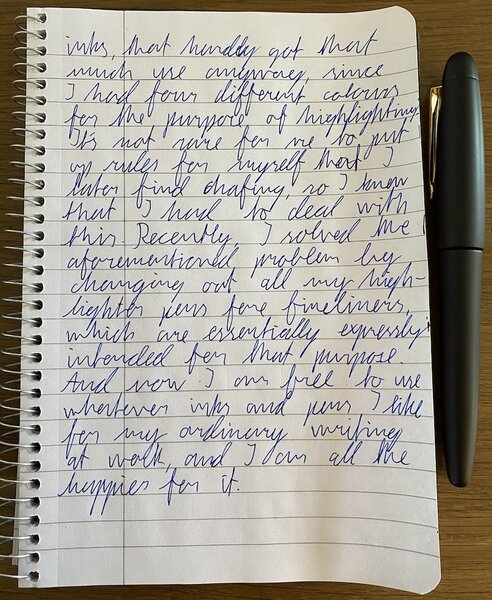 inks, that hardly got that
much use anyway, since
I had four different colours
for the purpose of highlighting.
It's not rare for me to put
up rules for myself that I
later find chafing, so I knew
that I had to deal with
this. Recently, I solved the
aforementioned problem by
changing out all my high-
lighter pens for fineliners,
which are essentially expressly
intended for that purpose.
And now I am free to use
whatever inks and pens I like
for my ordinary writing
at work, and I am all the
happier for it.